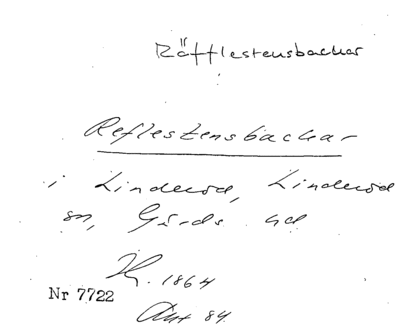 Räfflestensbackar
Reflestensbackar
i Linderöd, Linderöd
sn, Gärds hd
H. 1864
Nr 7722
Ant 84